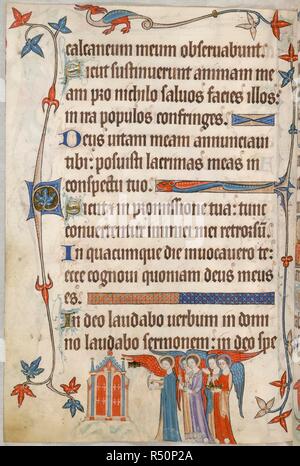 calcaneum meum obseruabunt.
Sicut sustinuerunt animam me
am pro nichilo saluos facies illos:
in ira populos confringes.
Deus uitam meam annunciaui
tibi: posuisti lacrimas meas in
conspectu tuo.
Sicut in promissione tua: tunc
conuertentur inimici mei retrorsũ.
In quacumque die inuocauero te:
ecce cognoui quoniam deus meus
es.
In deo laudabo uerbum in domi
no laudabo sermonem: in deo spe
alamy
Image ID: R50P2A
www.alamy.com